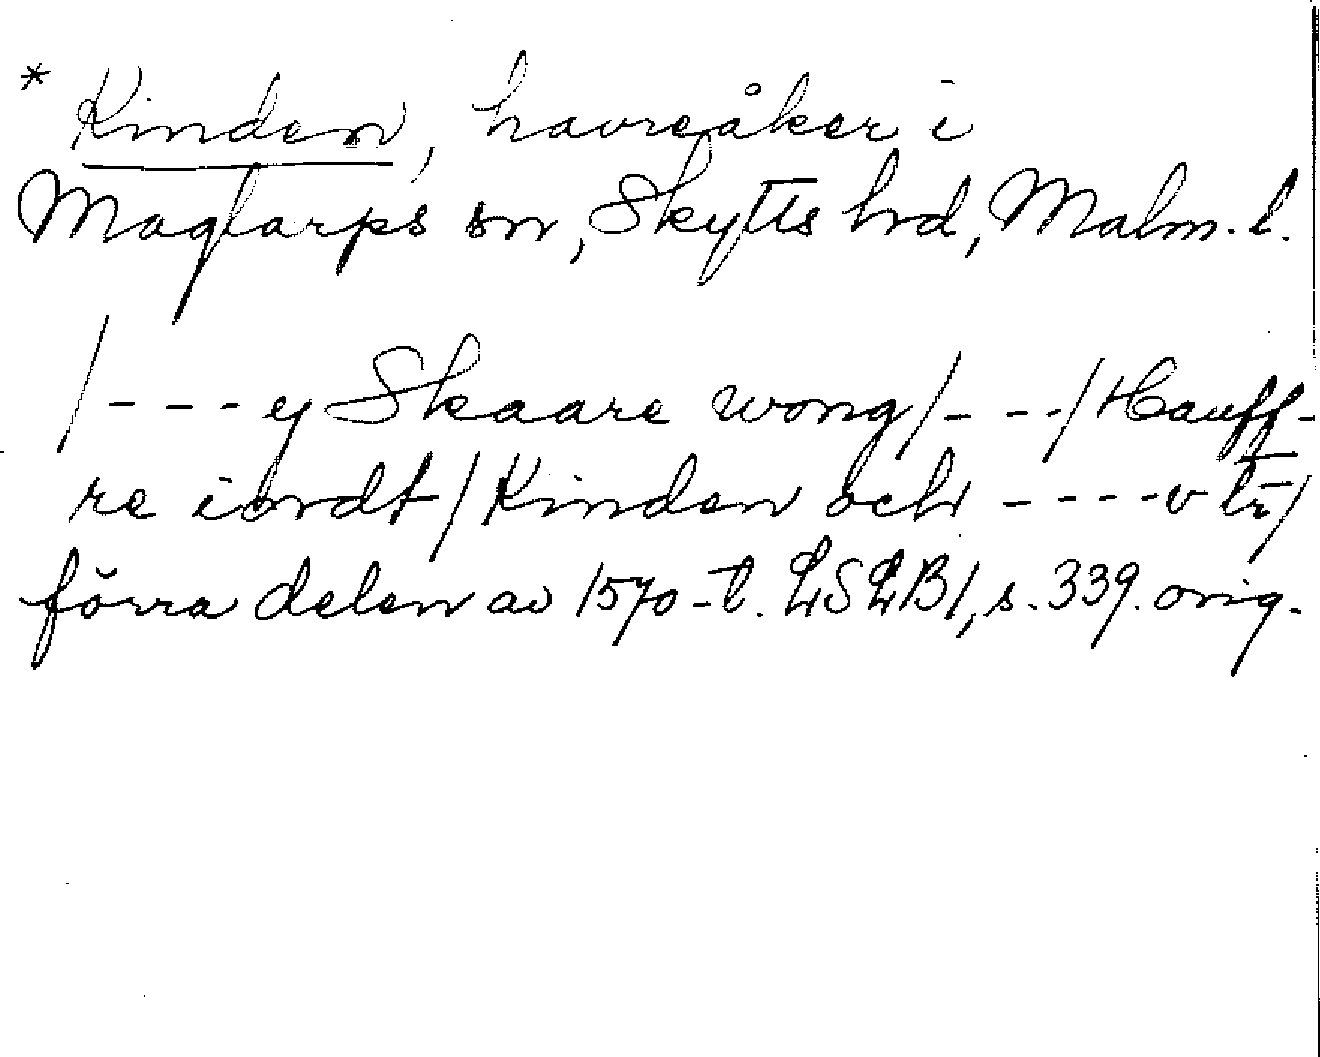 * Kinden, havreåker i
Maglarps sn, Skytts hd, Malm. l.
/---ey Skaare wong/---/Hauff-
re iordt/Kinden och ----v
förra delen av 1570-t. LSLB1, s. 339. orig.